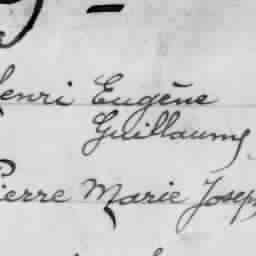 Henri Eugène
Guillaume
Pierre Marie Joseph